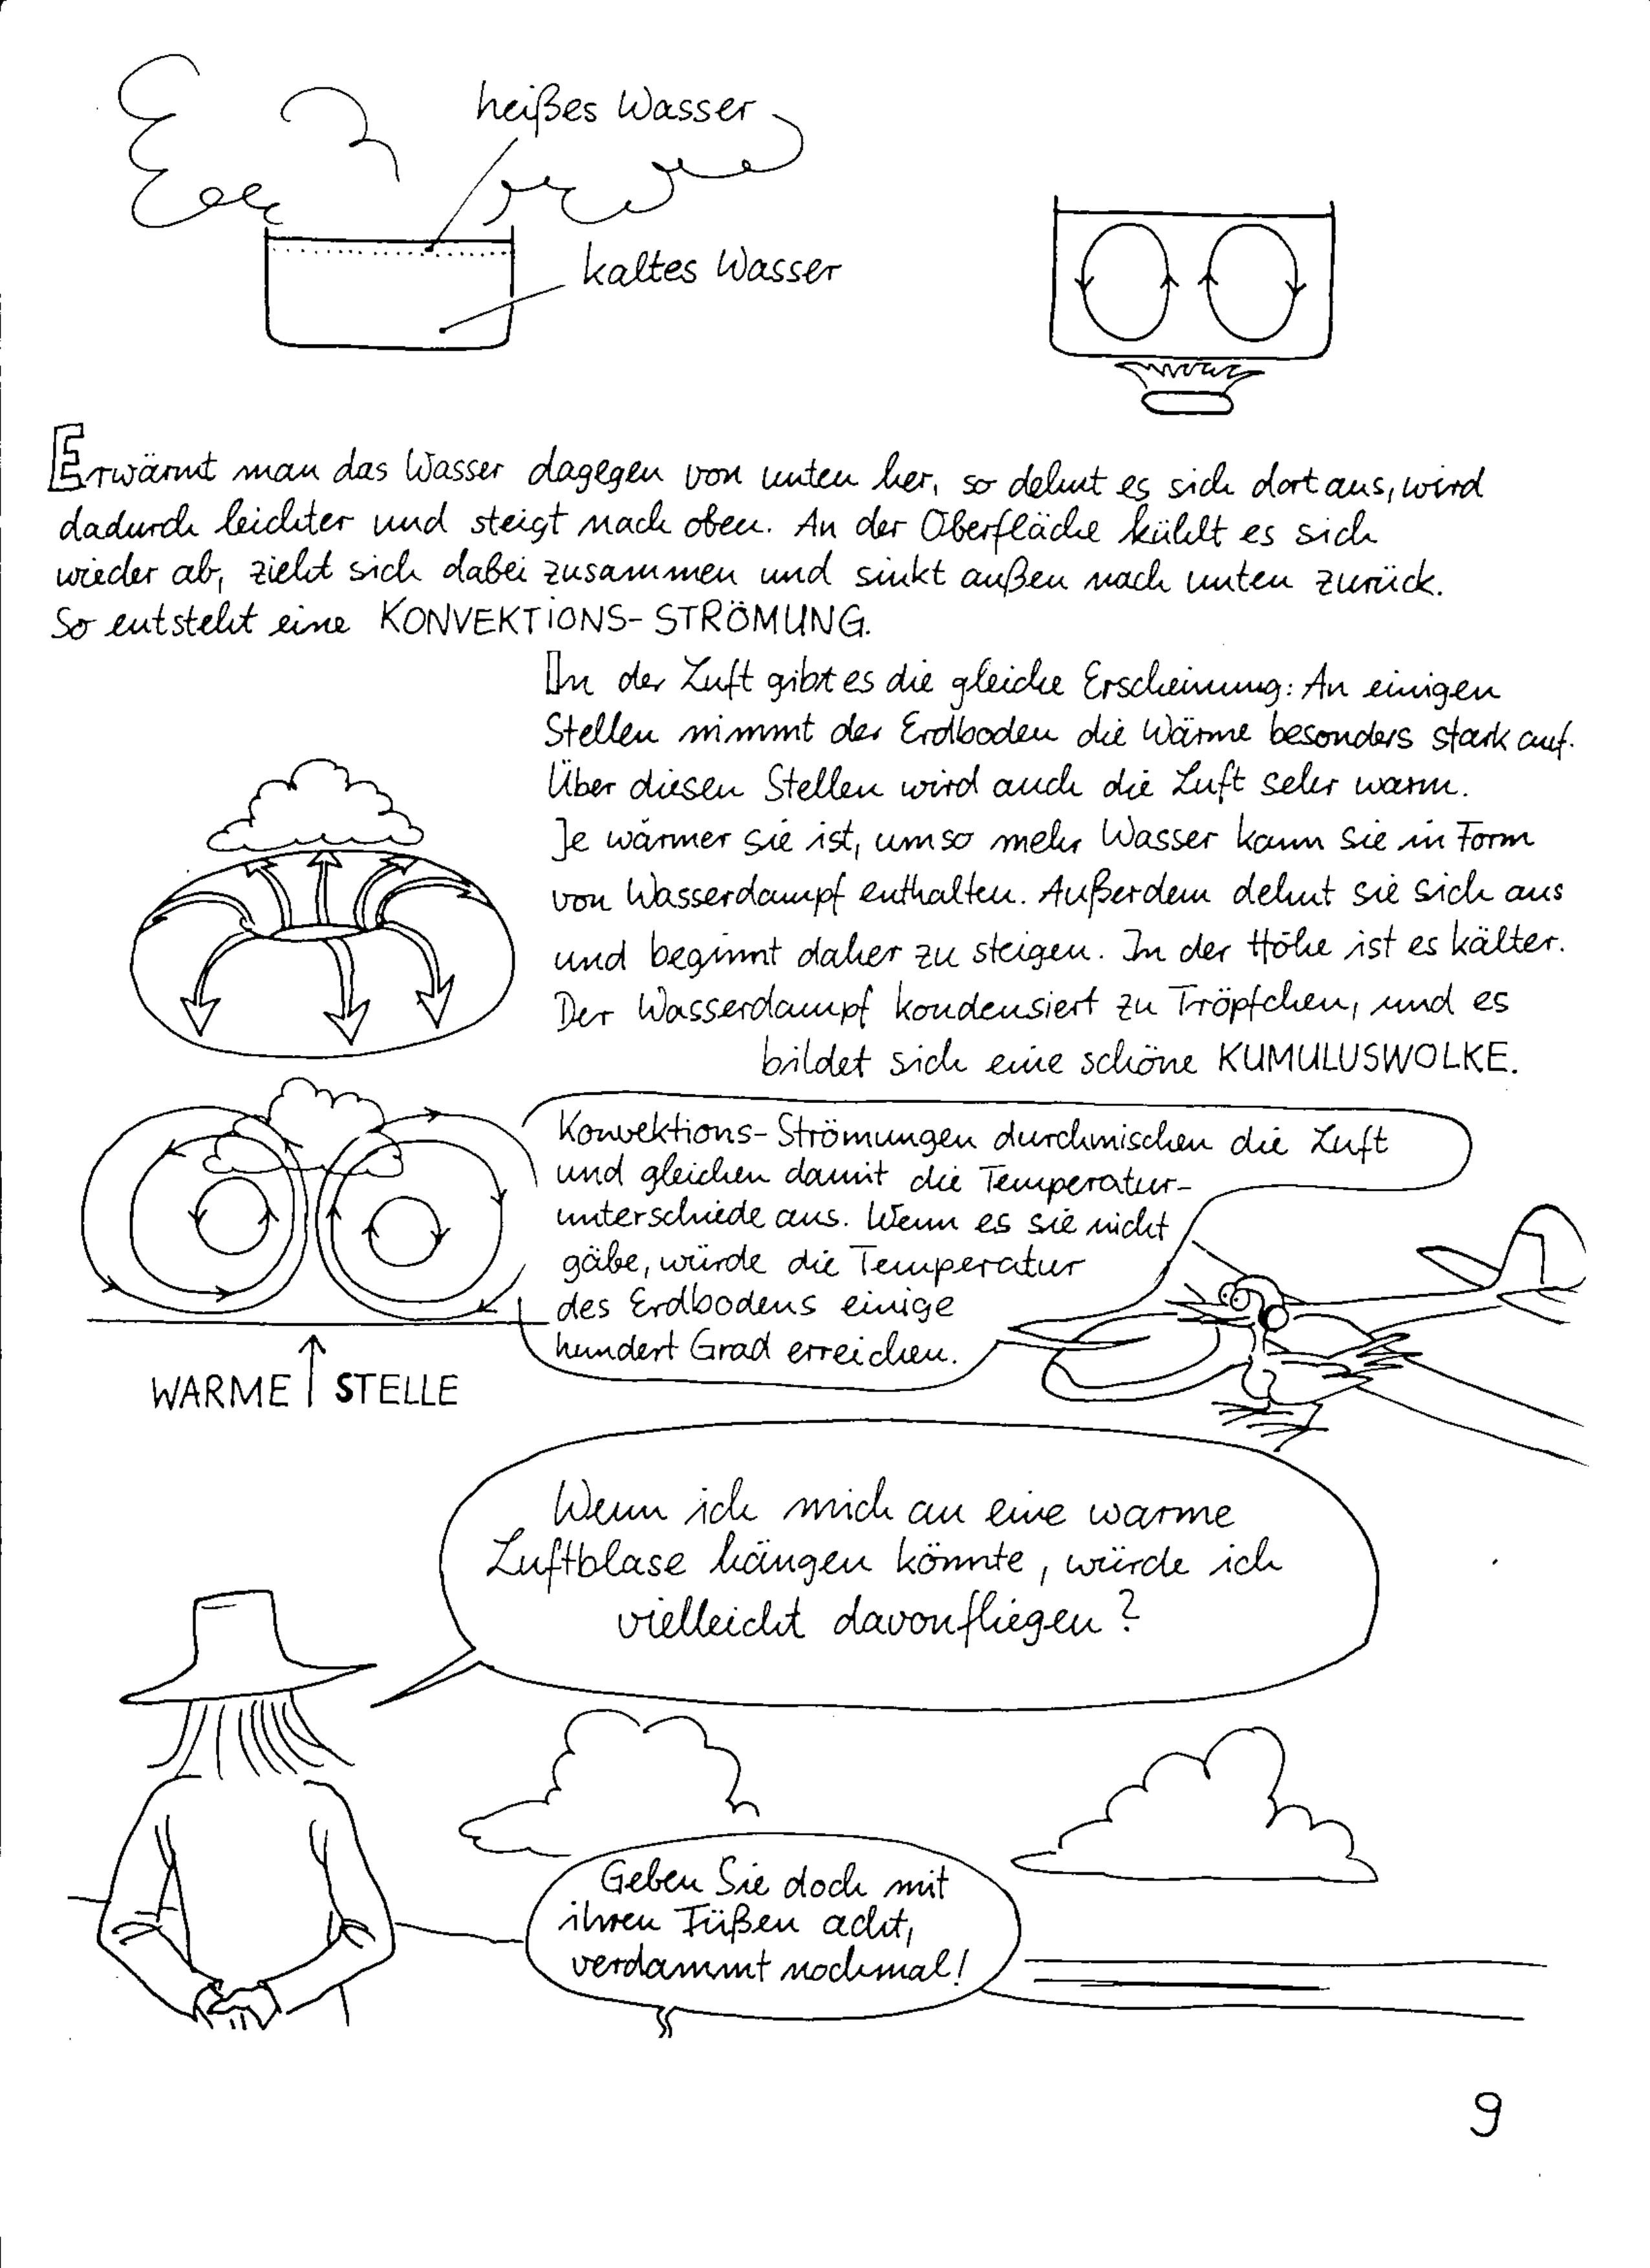 heißes Wasser
kaltes Wasser
Erwärmt man das Wasser dagegen von unten her, so dehnt es sich dort aus, wird
dadurch leichter und steigt nach oben. An der Oberfläche kühlt es sich
wieder ab, zieht sich dabei zusammen und sinkt außen nach unten zurück.
So entsteht eine KONVEKTIONS-STRÖMUNG.
In der Luft gibt es die gleiche Erscheinung: An einigen
Stellen nimmt der Erdboden die Wärme besonders stark auf.
Über diesen Stellen wird auch die Luft sehr warm.
Je wärmer sie ist, umso mehr Wasser kann sie in Form
von Wasserdampf enthalten. Außerdem dehnt sie sich aus
und beginnt daher zu steigen. In der Höhe ist es kälter.
Der Wasserdampf kondensiert zu Tröpfchen, und es
bildet sich eine schöne KUMULUSWOLKE.
Konvektions-Strömungen durchmischen die Luft
und gleichen damit die Temperatur-
unterschiede aus. Wenn es sie nicht
gäbe, würde die Temperatur
des Erdbodens einige
hundert Grad erreichen.
WARME STELLE
Wenn ich mich an eine warme
Luftblase hängen könnte, würde ich
vielleicht davonfliegen?
Geben Sie doch mit
ihren Füßen acht,
verdammt nochmal!
9